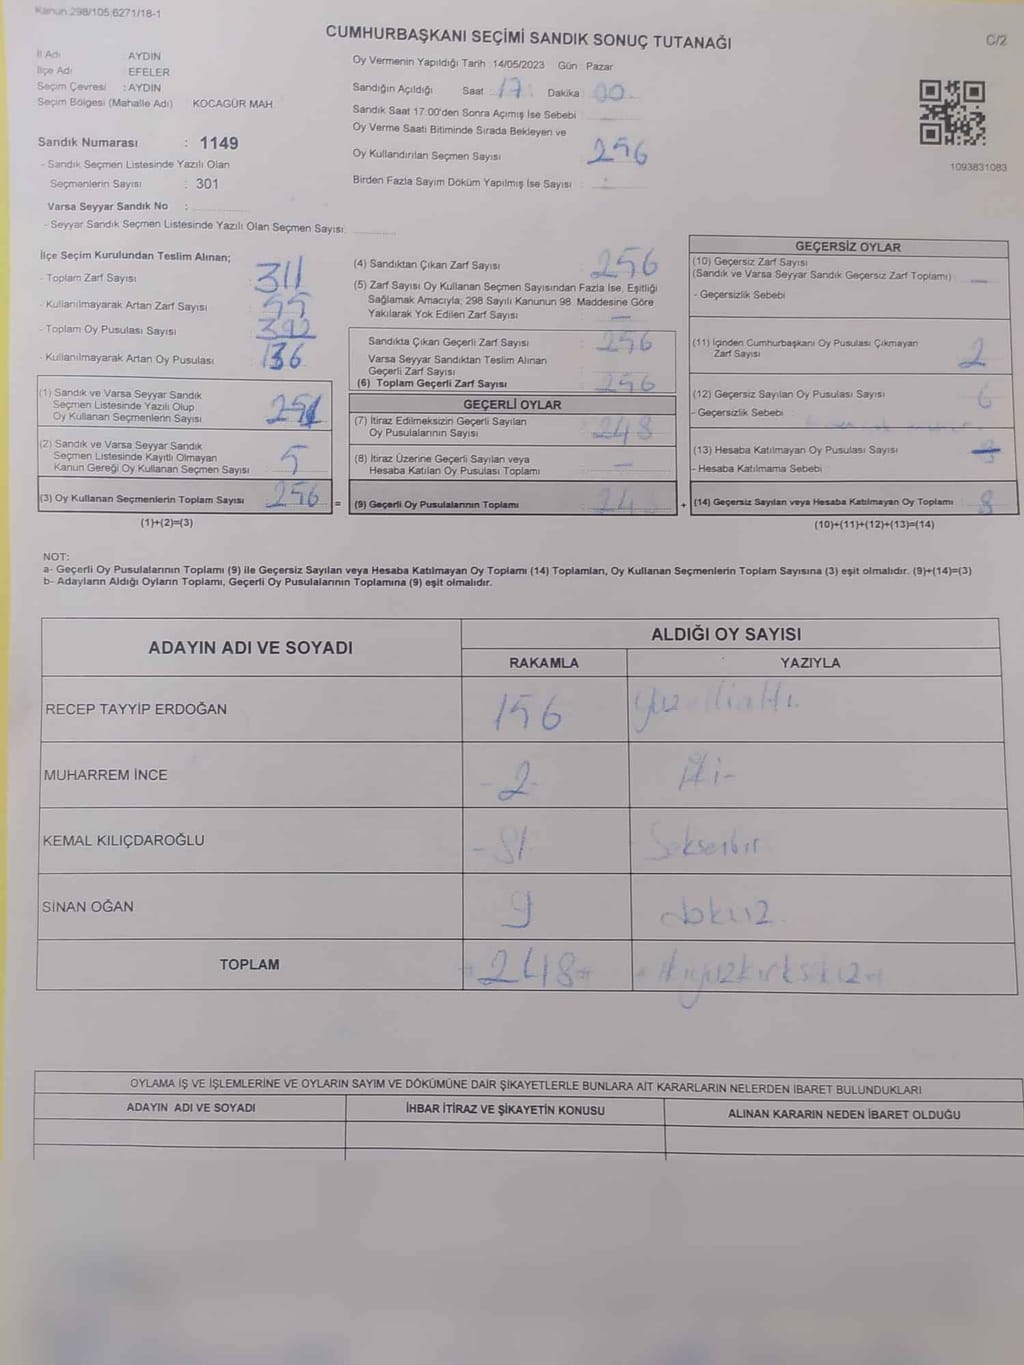 Kanun 298/105,6271/18-1
CUMHURBAŞKANI SEÇİMİ SANDIK SONUÇ TUTANAĞI
C/2
İl Adı AYDIN
İlçe Adı EFELER
Seçim Çevresi : AYDIN
Seçim Bölgesi (Mahalle Adı) KOCAGÜR MAH.
Sandık Numarası : 1149
- Sandık Seçmen Listesinde Yazılı Olan
Seçmenlerin Sayısı : 301
Varsa Seyyar Sandık No :
- Seyyar Sandık Seçmen Listesinde Yazılı Olan Seçmen Sayısı:
Oy Vermenin Yapıldığı Tarih : 14/05/2023 Gün : Pazar
Sandığın Açıldığı Saat : 17 Dakika : 00
Sandık Saat 17:00'den Sonra Açımış İse Sebebi :
Oy Verme Saati Bitiminde Sırada Bekleyen ve
Oy Kullandırılan Seçmen Sayısı : 256
Birden Fazla Sayım Döküm Yapılmış İse Sayısı :
1093831083
İlçe Seçim Kurulundan Teslim Alınan;
- Toplam Zarf Sayısı : 311
- Kullanılmayarak Artan Zarf Sayısı : 55
- Toplam Oy Pusulası Sayısı : 392
- Kullanılmayarak Artan Oy Pusulası : 136
(1) Sandık ve Varsa Seyyar Sandık
Seçmen Listesinde Yazılı Olup
Oy Kullanan Seçmenlerin Sayısı : 251
(2) Sandık ve Varsa Seyyar Sandık
Seçmen Listesinde Kayıtlı Olmayan
Kanun Gereği Oy Kullanan Seçmen Sayısı : 5
(3) Oy Kullanan Seçmenlerin Toplam Sayısı : 256 =
(1)+(2)=(3)
(4) Sandıktan Çıkan Zarf Sayısı : 256
(5) Zarf Sayısı Oy Kullanan Seçmen Sayısından Fazla İse, Eşitliği
Sağlamak Amacıyla; 298 Sayılı Kanunun 98. Maddesine Göre
Yakılarak Yok Edilen Zarf Sayısı : —
Sandıkta Çıkan Geçerli Zarf Sayısı : 256
Varsa Seyyar Sandıktan Teslim Alınan
Geçerli Zarf Sayısı :
(6) Toplam Geçerli Zarf Sayısı : 256
GEÇERLİ OYLAR
(7) İtiraz Edilmeksizin Geçerli Sayılan
Oy Pusulalarının Sayısı : 248
(8) İtiraz Üzerine Geçerli Sayılan veya
Hesaba Katılan Oy Pusulası Toplamı : —
(9) Geçerli Oy Pusulalarının Toplamı : 248 +
GEÇERSİZ OYLAR
(10) Geçersiz Zarf Sayısı
(Sandık ve Varsa Seyyar Sandık Geçersiz Zarf Toplamı) : —
- Geçersizlik Sebebi
(11) İçinden Cumhurbaşkanı Oy Pusulası Çıkmayan
Zarf Sayısı : 2
(12) Geçersiz Sayılan Oy Pusulası Sayısı : 6
- Geçersizlik Sebebi
(13) Hesaba Katılmayan Oy Pusulası Sayısı :
- Hesaba Katılmama Sebebi
(14) Geçersiz Sayılan veya Hesaba Katılmayan Oy Toplamı : 8
(10)+(11)+(12)+(13)=(14)
NOT:
a- Geçerli Oy Pusulalarının Toplamı (9) ile Geçersiz Sayılan veya Hesaba Katılmayan Oy Toplamı (14) Toplamları, Oy Kullanan Seçmenlerin Toplam Sayısına (3) eşit olmalıdır. (9)+(14)=(3)
b- Adayların Aldığı Oyların Toplamı, Geçerli Oy Pusulalarının Toplamına (9) eşit olmalıdır.
ADAYIN ADI VE SOYADI
ALDIĞI OY SAYISI
RAKAMLA YAZIYLA
RECEP TAYYİP ERDOĞAN 156 yüzelliAltı.
MUHARREM İNCE -2- İki-
KEMAL KILIÇDAROĞLU -81- Seksenbir
SİNAN OĞAN 9 dokuz
TOPLAM +248+ ikiyüzkırksekiz
OYLAMA İŞ VE İŞLEMLERİNE VE OYLARIN SAYIM VE DÖKÜMÜNE DAİR ŞİKAYETLERLE BUNLARA AİT KARARLARIN NELERDEN İBARET BULUNDUKLARI
ADAYIN ADI VE SOYADI İHBAR İTİRAZ VE ŞİKAYETİN KONUSU ALINAN KARARIN NEDEN İBARET OLDUĞU